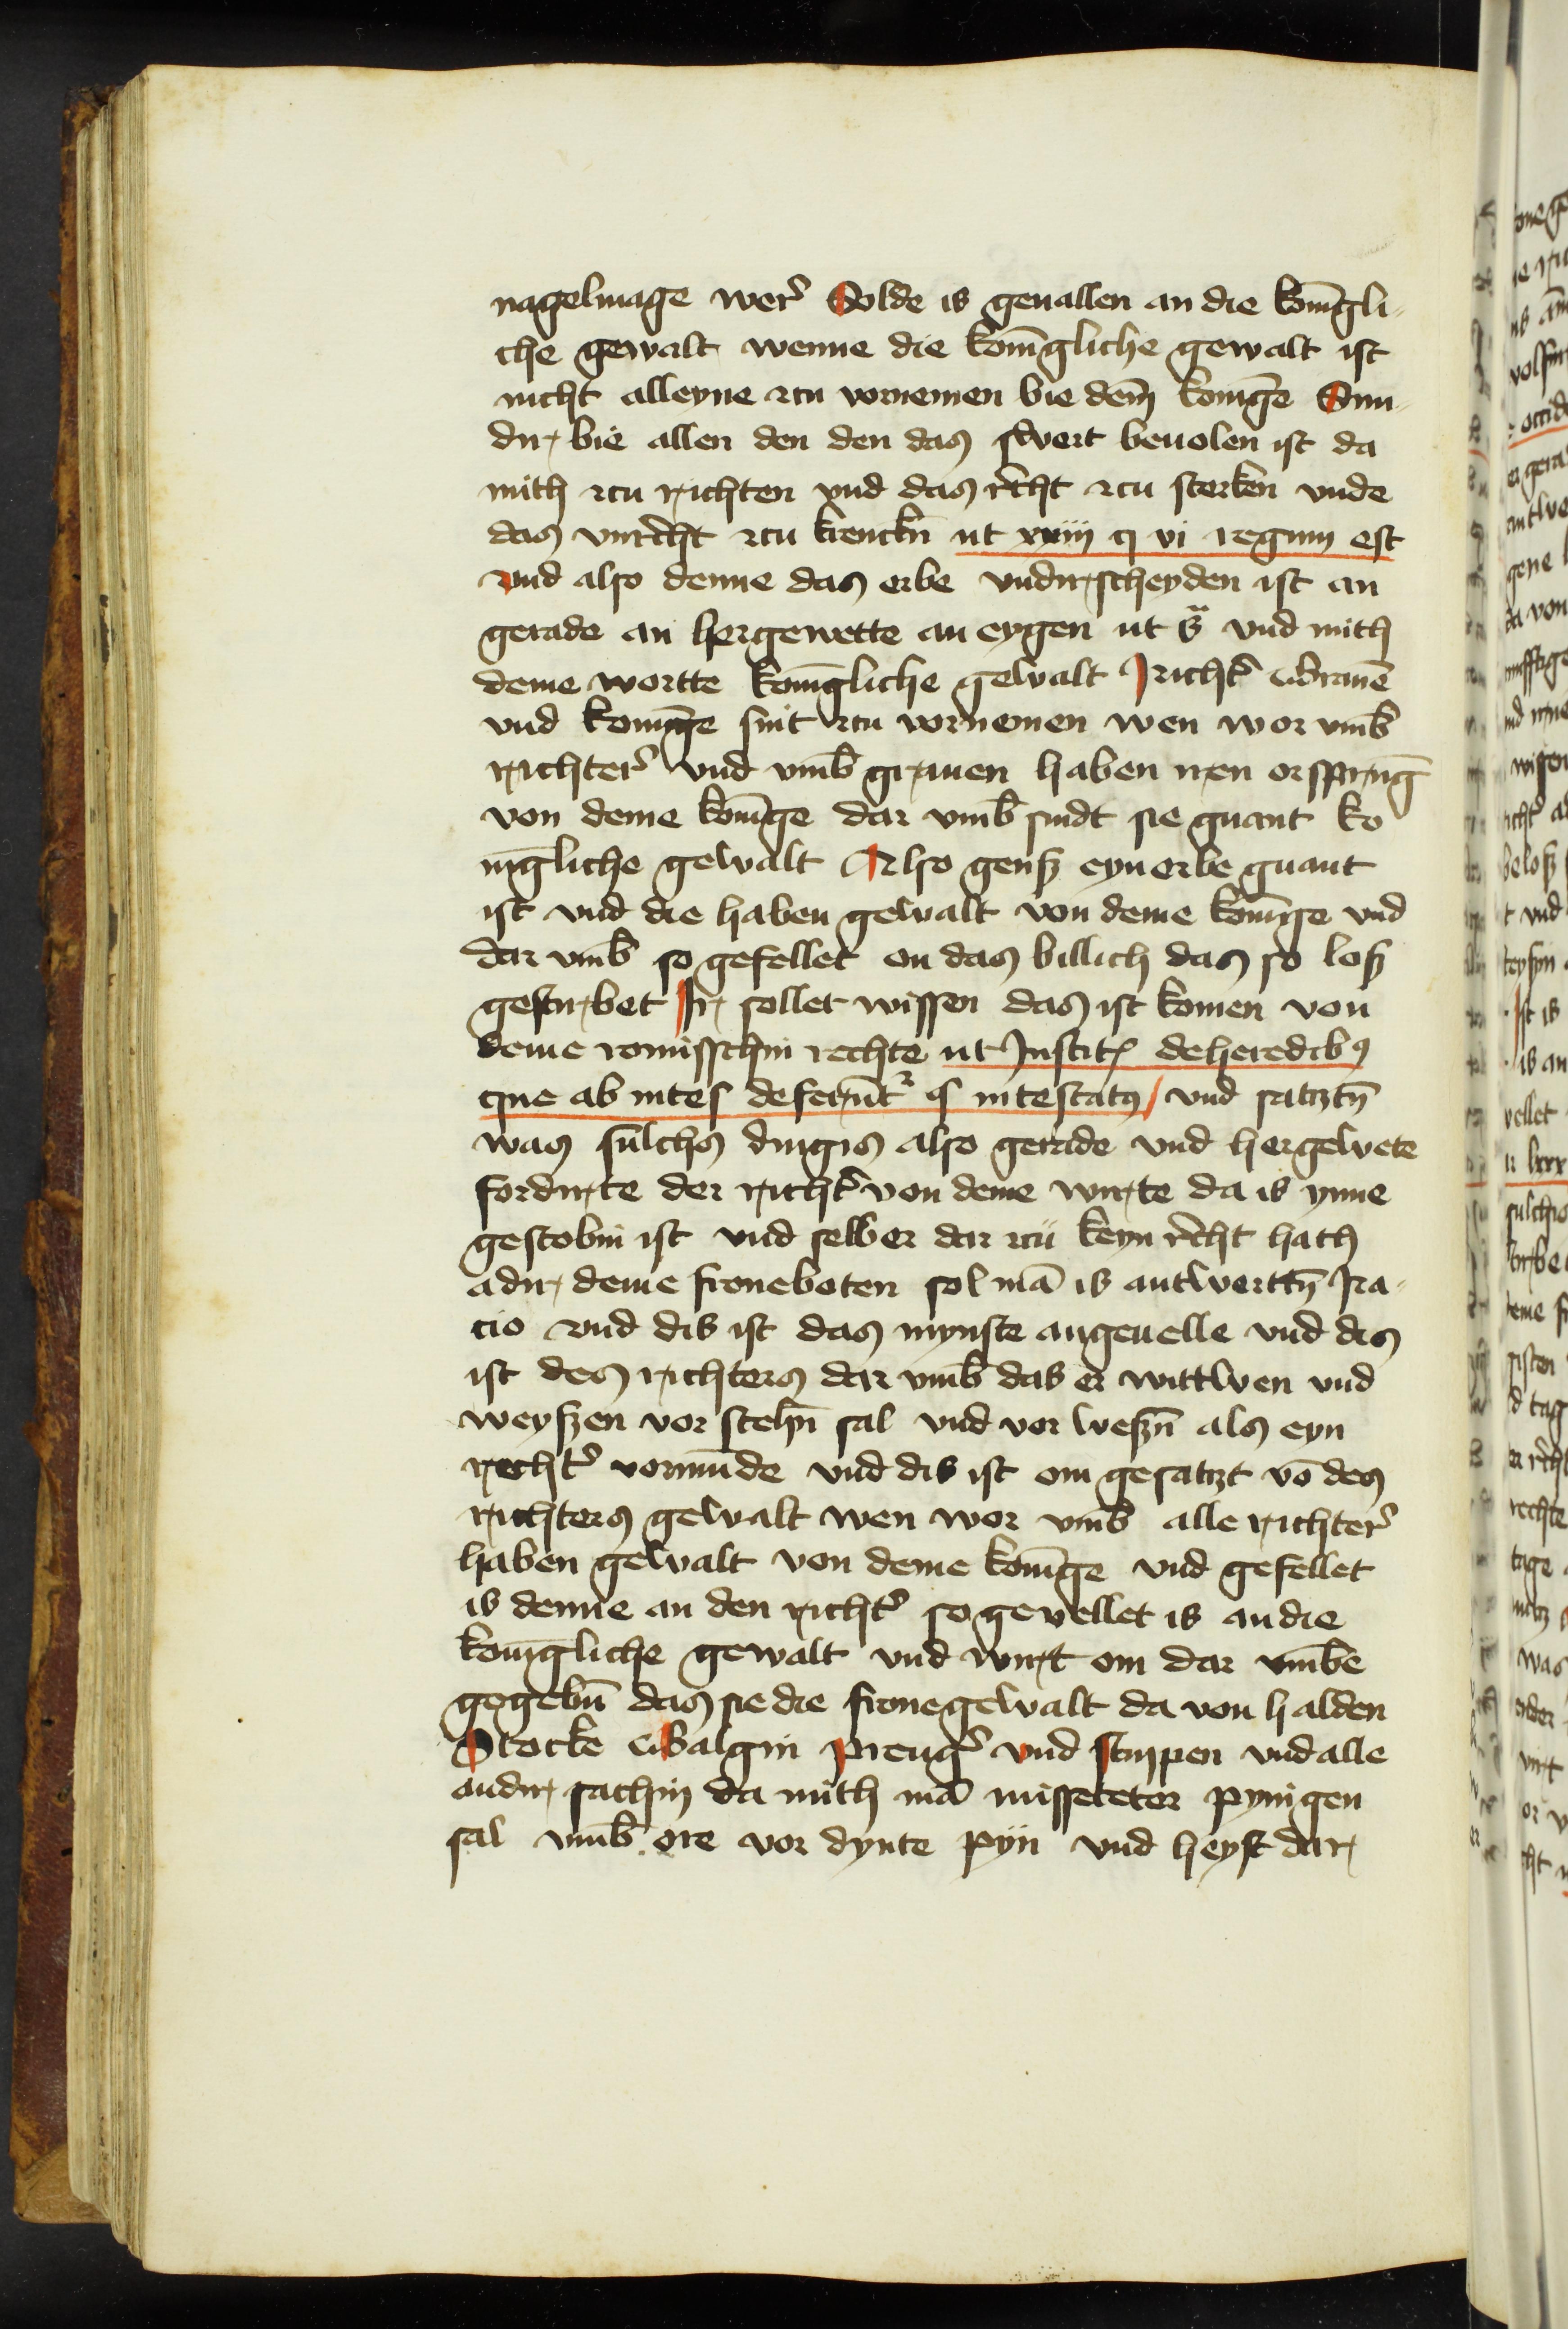 nagelmage wer̾ Solde is geuallen an die kōnīgli-
che gewalt wenne die konīgliche gewalt ist
nicht alleyne zcu vornemen bie dem̄ konīge Sun-
dir bie allen den den das swert beuolen ist da
mith zcu richten vnd das r̄cht zcu sterken vnde
das vnr̄cht zcu krenckn̄ ut xxiij q vi regum est
vnd also denne das erbe vndirscheyden ist an
gerade an hergewette an eygen ut sᷓ vnd mith
deme wortte konīgliche gewalt Richt̾ Grauē
vnd konīge sint zcu vornemen wen wor vmb̄
richter̾ vnd vmb̄ grauen haben iren orsprūg
von deme konīge dar vmb̄ sindt sie gnant ko
nīgliche gewalt Also gensz eyn erbe gnant
ist vnd die haben gewalt von deme konīge vnd
dar vmb̄ so gefellet en das billich das so losz
gestirbet Ir sollet wissen das ist komen von
deme romisschin rechte ut Instit̄ de heredibꝯ
que ab intes deferūtᷣ § intestatꝯ / vnd satztn̄
was sulchs dingis also gerade vnd hergewete
fordirte der richt̾ von deme wirte da is ynne
gestobin ist vnd selber dar zcu keyn r̄cht hath
adir deme froneboten sol mā is antwerttn̄ Ira-
cio vnd dis ist das mynste angeuelle vnd dis
ist des richters dar vmb̄ das er wittwen vnd
weyszen vor stehn̄ sal vnd vor weszn̄ als eyn
recht̾ vormūde vnd dis ist om gesatzt vō des
richters gewalt wen wor vmb̄ alle richter̾
haben gewalt von deme konīge vnd gefellet
is denne an den richt̾ so geuellet is an die
konīgliche gewalt vnd wirt om dar vmb̄e
gegebn̄ das sie die fronegewalt da von halden
Stocke Galgin Preng̾ vnd stupen vnd alle
andir sachin da mith mā misseteter pynigen
sal vmb̄ ore vor dynte pyn vnd heyst dar